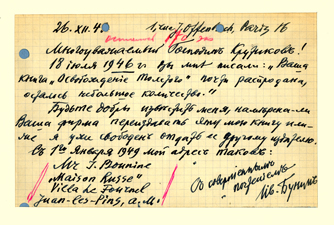 26. XII. 48. 1, rue J. Offenbach, Paris 16
Многоуважаемый Господин Крутиков!
18 июля 1946 г. Вы мне писали: „Ваша
книга „Освобождение Толстого" почти распродана,
осталось небольшое количество."
Будьте добры известить меня, намерена-ли
Ваша фирма переиздавать эту мою книгу или-
же я уже свободен отдать ее другому издателю.
С 1го Января 1949 мой адрес таков:
Mr I. Bounine
„Maison Russe"
Villa de
Juan-les-Pins, a. M.
С совершенным
почтением
Ив. Бунин